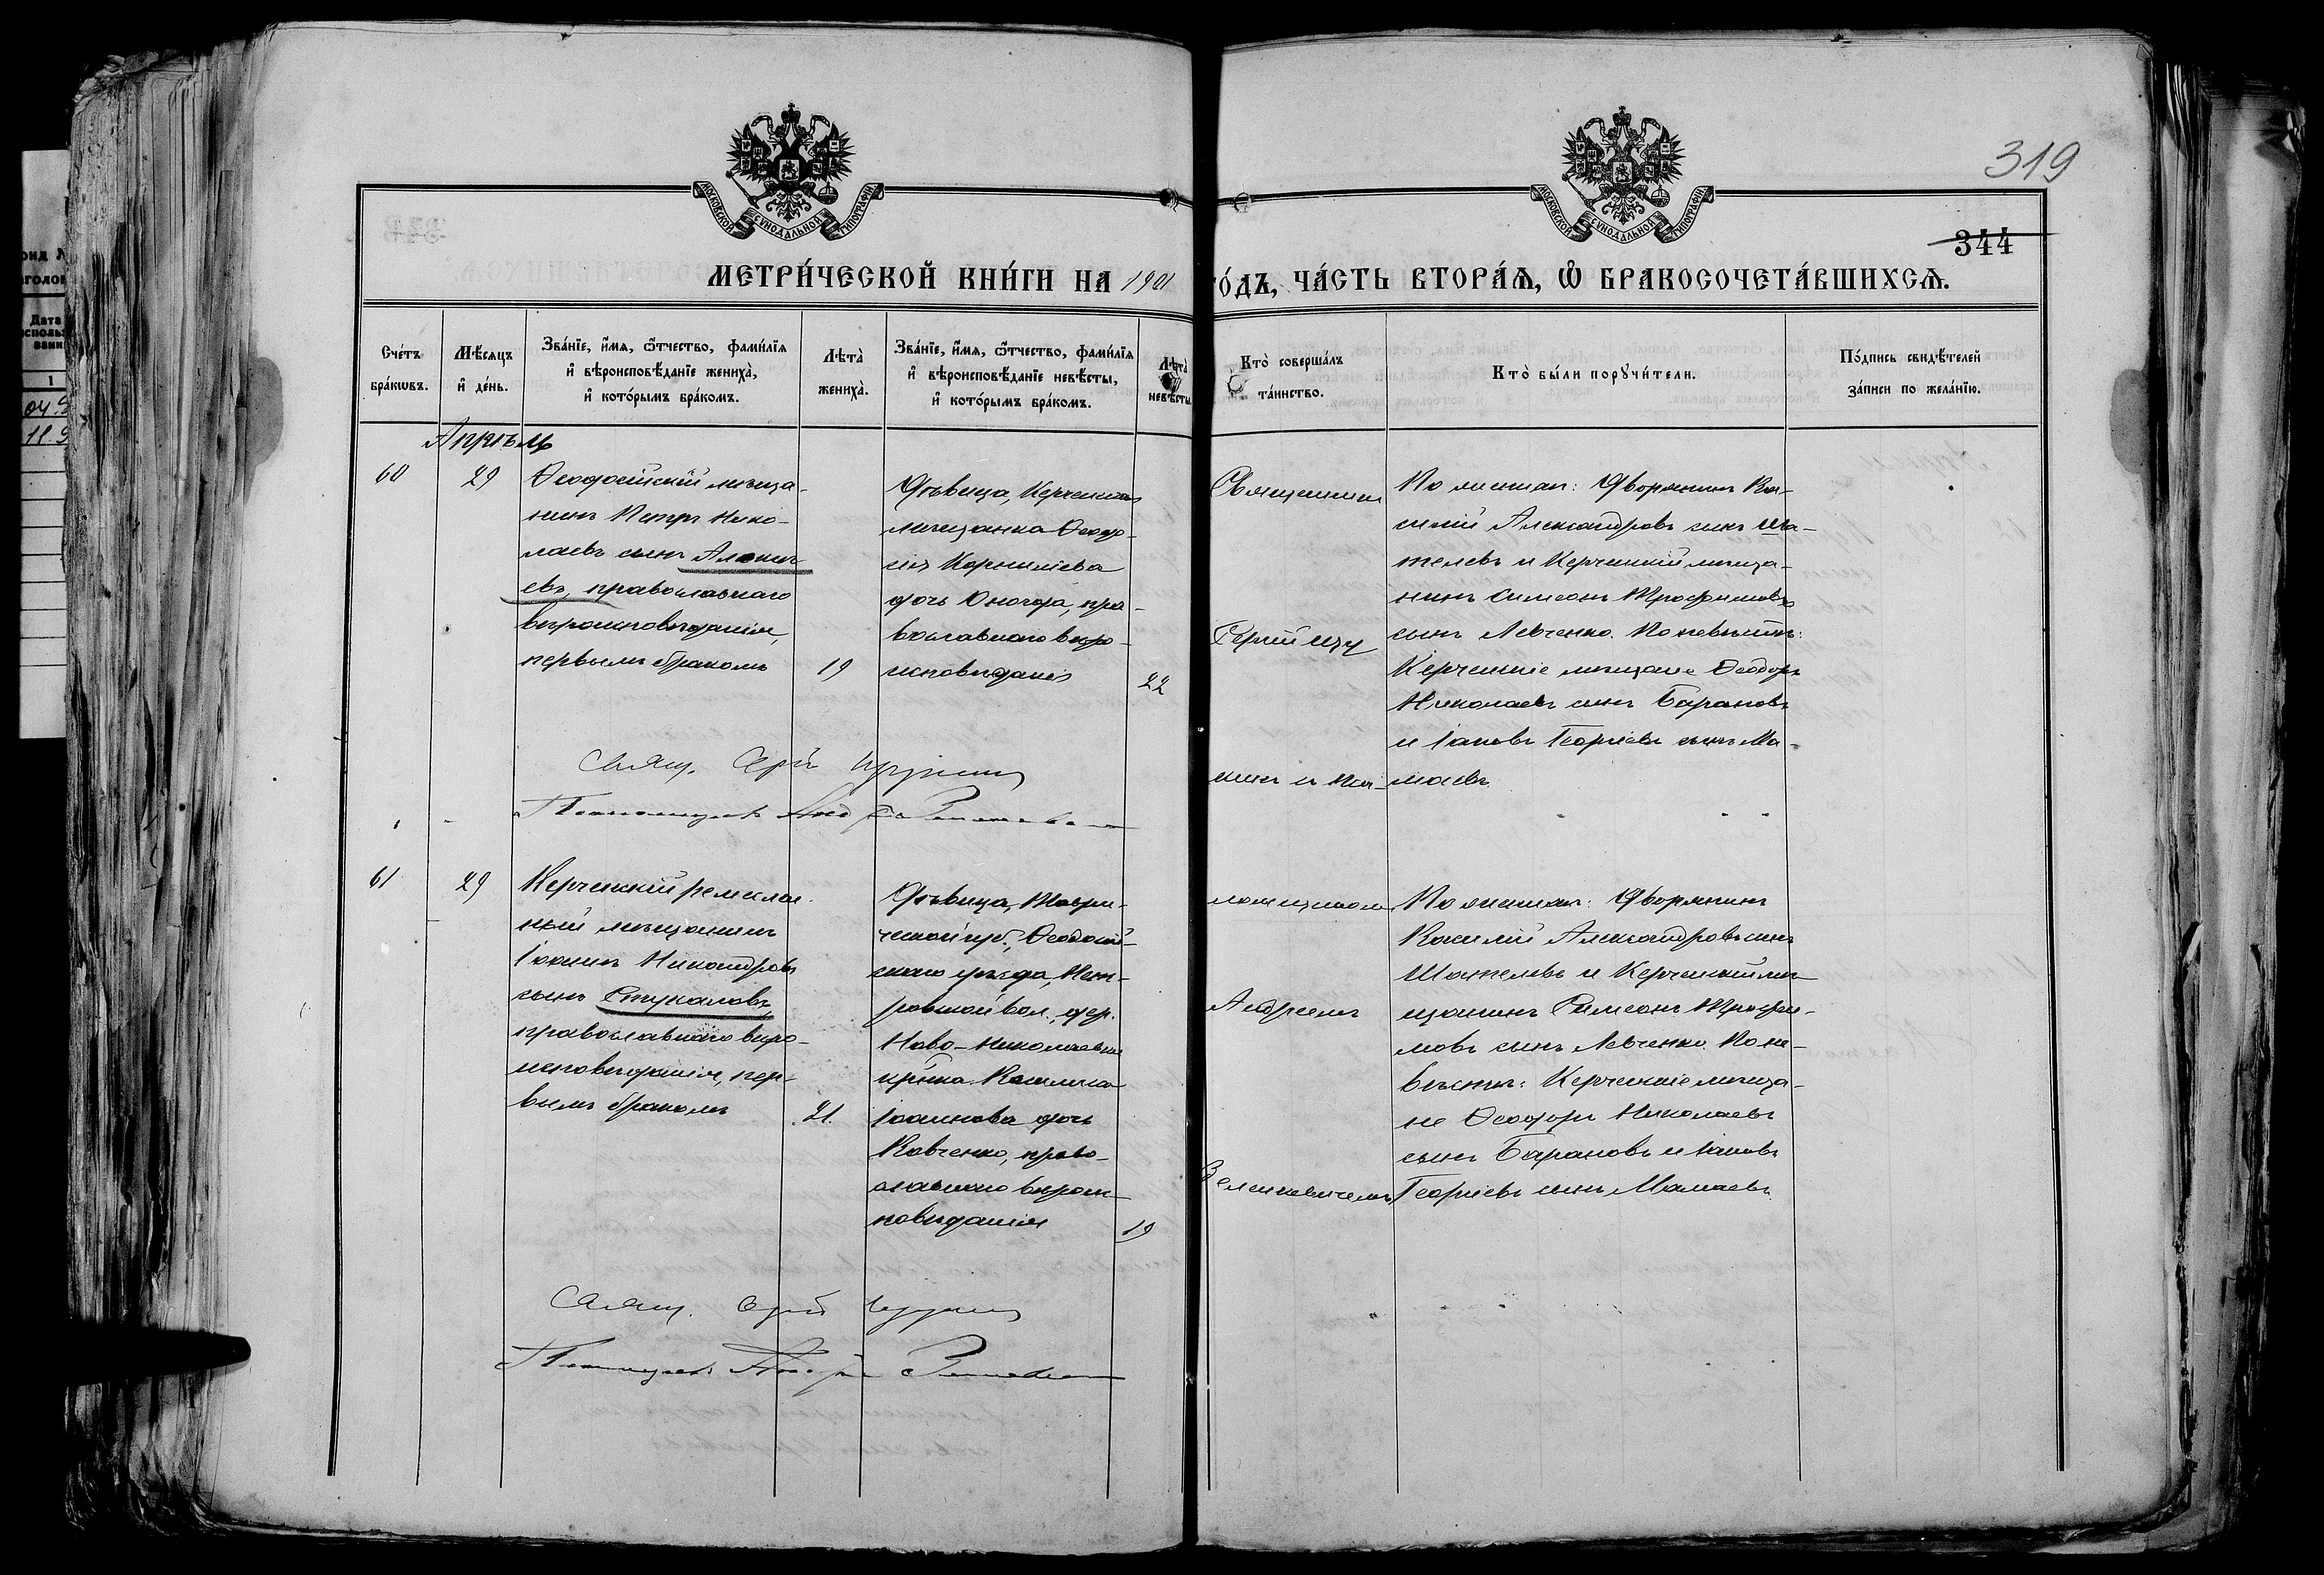 319
344
МОСКОВСКОЙ СѴНОДАЛЬНОЙ ТИПОГРАФІИ
МОСКОВСКОЙ СѴНОДАЛЬНОЙ ТИПОГРАФІИ
МЕТРИ́ЧЕСКОЙ КНИ́ГИ НА 1901 ГО́ДЪ, ЧА́СТЬ ВТОРА́Ѧ, Ѽ БРАКОСОЧЕТА́ВШИХСѦ.
Сче́тъ
бра́кѡвъ.
Мѣ́сяцъ
и҆ де́нь.
Зва́нїе, и҆́мѧ, ѻ҆́тчество, фами́лїѧ
и҆ вѣроисповѣ́данїе жениха̀,
и҆ кото́рымъ бра́комъ.
Лѣта̀
жениха̀.
Зва́нїе, и҆́мѧ, ѻ҆́тчество, фами́лїѧ
и҆ вѣроисповѣ́данїе невѣ́сты,
и҆ кото́рымъ бра́комъ.
Лѣта̀
невѣ́сты
Кто̀ соверша́лъ
та́инство.
Кто̀ бы́ли порꙋчи́тели.
По́дпись свидѣ́телей
за́писи по жела́нїю.
Апрѣль
60
29
Ѳеодосійскій мѣща-
нинъ Петръ Нико-
лаевъ сынъ Алексѣ-
евъ, православнаго
вѣроисповѣданія,
первымъ бракомъ
19
Дѣвица, Керченская
мѣщанка Ѳеодо-
сія Корниліева
дочь, пра-
вославнаго вѣро-
исповѣданія
22
Священникъ
Сергій
По женихѣ: Дворянинъ Ва-
силій Александровъ сынъ Ша-
телевъ и Керченскій мѣща-
нинъ Симеонъ Трофимовъ
сынъ Левченко. По невѣстѣ:
Керченскіе мѣщане Ѳеодоръ
Николаевъ сынъ Барановъ
и Іаковъ Георгіевъ сынъ Ма-
маевъ.
Свящ.
61
29
Керченскій ремеслен-
ный мѣщанинъ
Іоаннъ Никандровъ
сынъ Стукаловъ,
православнаго вѣро-
исповѣданія, пер-
вымъ бракомъ
21.
Дѣвица, Таври-
ческой губ., Ѳеодосій-
скаго уѣзда, Пет-
ровской вол., дер.
Ново-Николаевки
кр-ка Василиса
Іоаннова дочь
Ковченко, право-
славнаго вѣроис-
повѣданія
19
Андреемъ
По женихѣ: Дворянинъ
Василій Александровъ сынъ
Шателевъ и Керченскій мѣ-
щанинъ Симеонъ Трофи-
мовъ сынъ Левченко. По не-
вѣстѣ: Керченскіе мѣща-
не Ѳеодоръ Николаевъ
сынъ Барановъ и Іаковъ
Георгіевъ сынъ Мамаевъ.
Свящ.